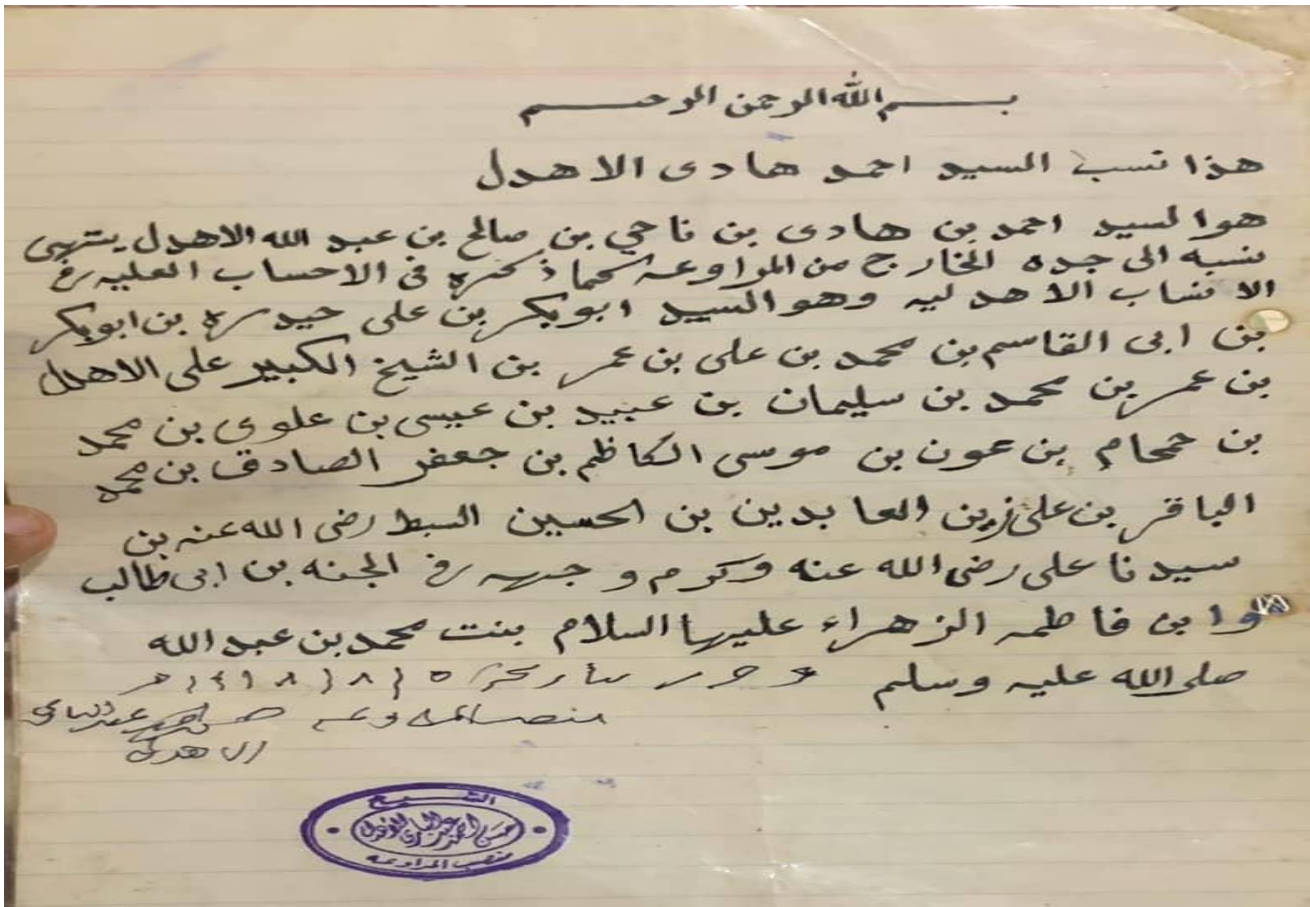 بسم الله الرحمن الرحيم
هذا نسب السيد احمد هادى الاهدل
هو السيد احمد بن هادى بن ناجي بن صالح بن عبد الله الاهدل ينتهى
نسبه الى جده الخارج من المراوعه كما ذكره فى الاحساب العليه في
الانساب الاهدليه وهو السيد ابوبكر بن على حيدره بن ابوبكر
بن ابى القاسم بن محمد بن على بن عمر بن الشيخ الكبير على الاهدل
بن عمر بن محمد بن سليمان بن عبيد بن عيسى بن علوى بن محمد
بن حمحام بن عون بن موسى الكاظم بن جعفر الصادق بن محمد
الباقر بن على زين العابدين بن الحسين السبط رضى الله عنه بن
سيدنا على رضى الله عنه وكرم وجهه في الجنه بن ابى طالب
وابن فاطمه الزهراء عليها السلام بنت محمد بن عبد الله
صلى الله عليه وسلم وحرر بتاريخه ٥ / ٨ / ١٤١٨ هـ
منصب المراوعه حسن احمد عبد الباري
الاهدل
الشيخ
حسن احمد عبد الباري الاهدل
منصب المراوعه